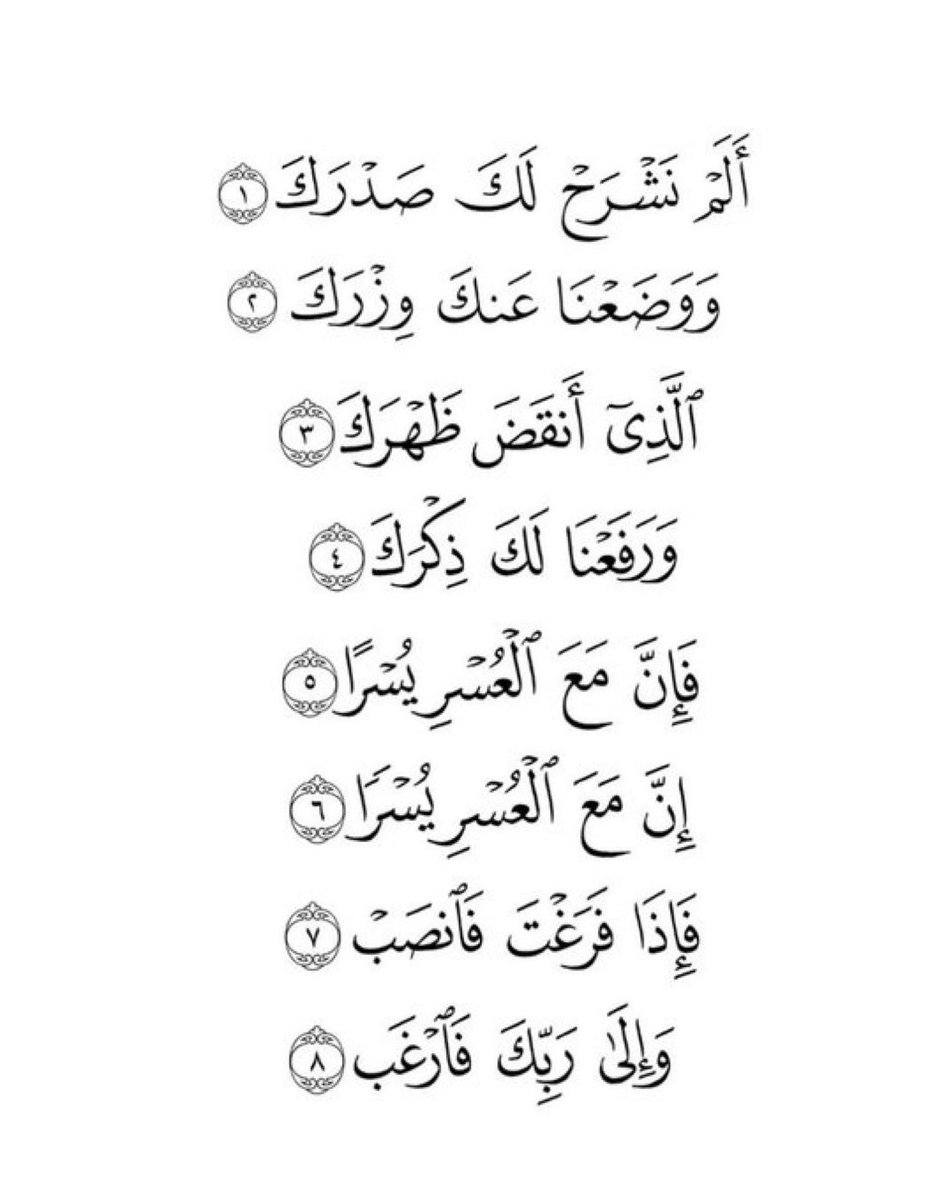 أَلَمْ نَشْرَحْ لَكَ صَدْرَكَ ١
وَوَضَعْنَا عَنكَ وِزْرَكَ ٢
ٱلَّذِىٓ أَنقَضَ ظَهْرَكَ ٣
وَرَفَعْنَا لَكَ ذِكْرَكَ ٤
فَإِنَّ مَعَ ٱلْعُسْرِ يُسْرًا ٥
إِنَّ مَعَ ٱلْعُسْرِ يُسْرًا ٦
فَإِذَا فَرَغْتَ فَٱنصَبْ ٧
وَإِلَىٰ رَبِّكَ فَٱرْغَب ٨